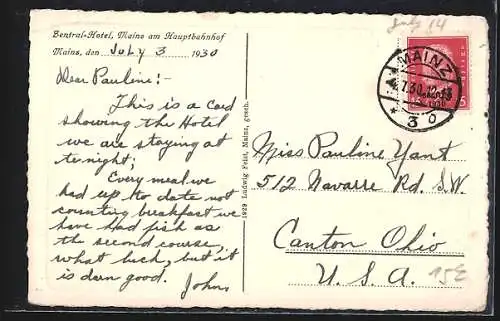 Zentral-Hotel, Mainz am Hauptbahnhof
Mainz, den July 3 1930
Dear Pauline:-
This is a card
showing the Hotel
we are staying at
tonight;
Every meal we
had up to date not
counting breakfast we
have had fish as
the second course,
what luck, but it
is darn good.
John
1929 Ludwig Feist, Mainz, gesch.
July 14
MAINZ
4.7.30.12-13
* 3 o
Miss Pauline Yant
512 Navarre Rd. S.W.
Canton Ohio
U.S.A.
15E